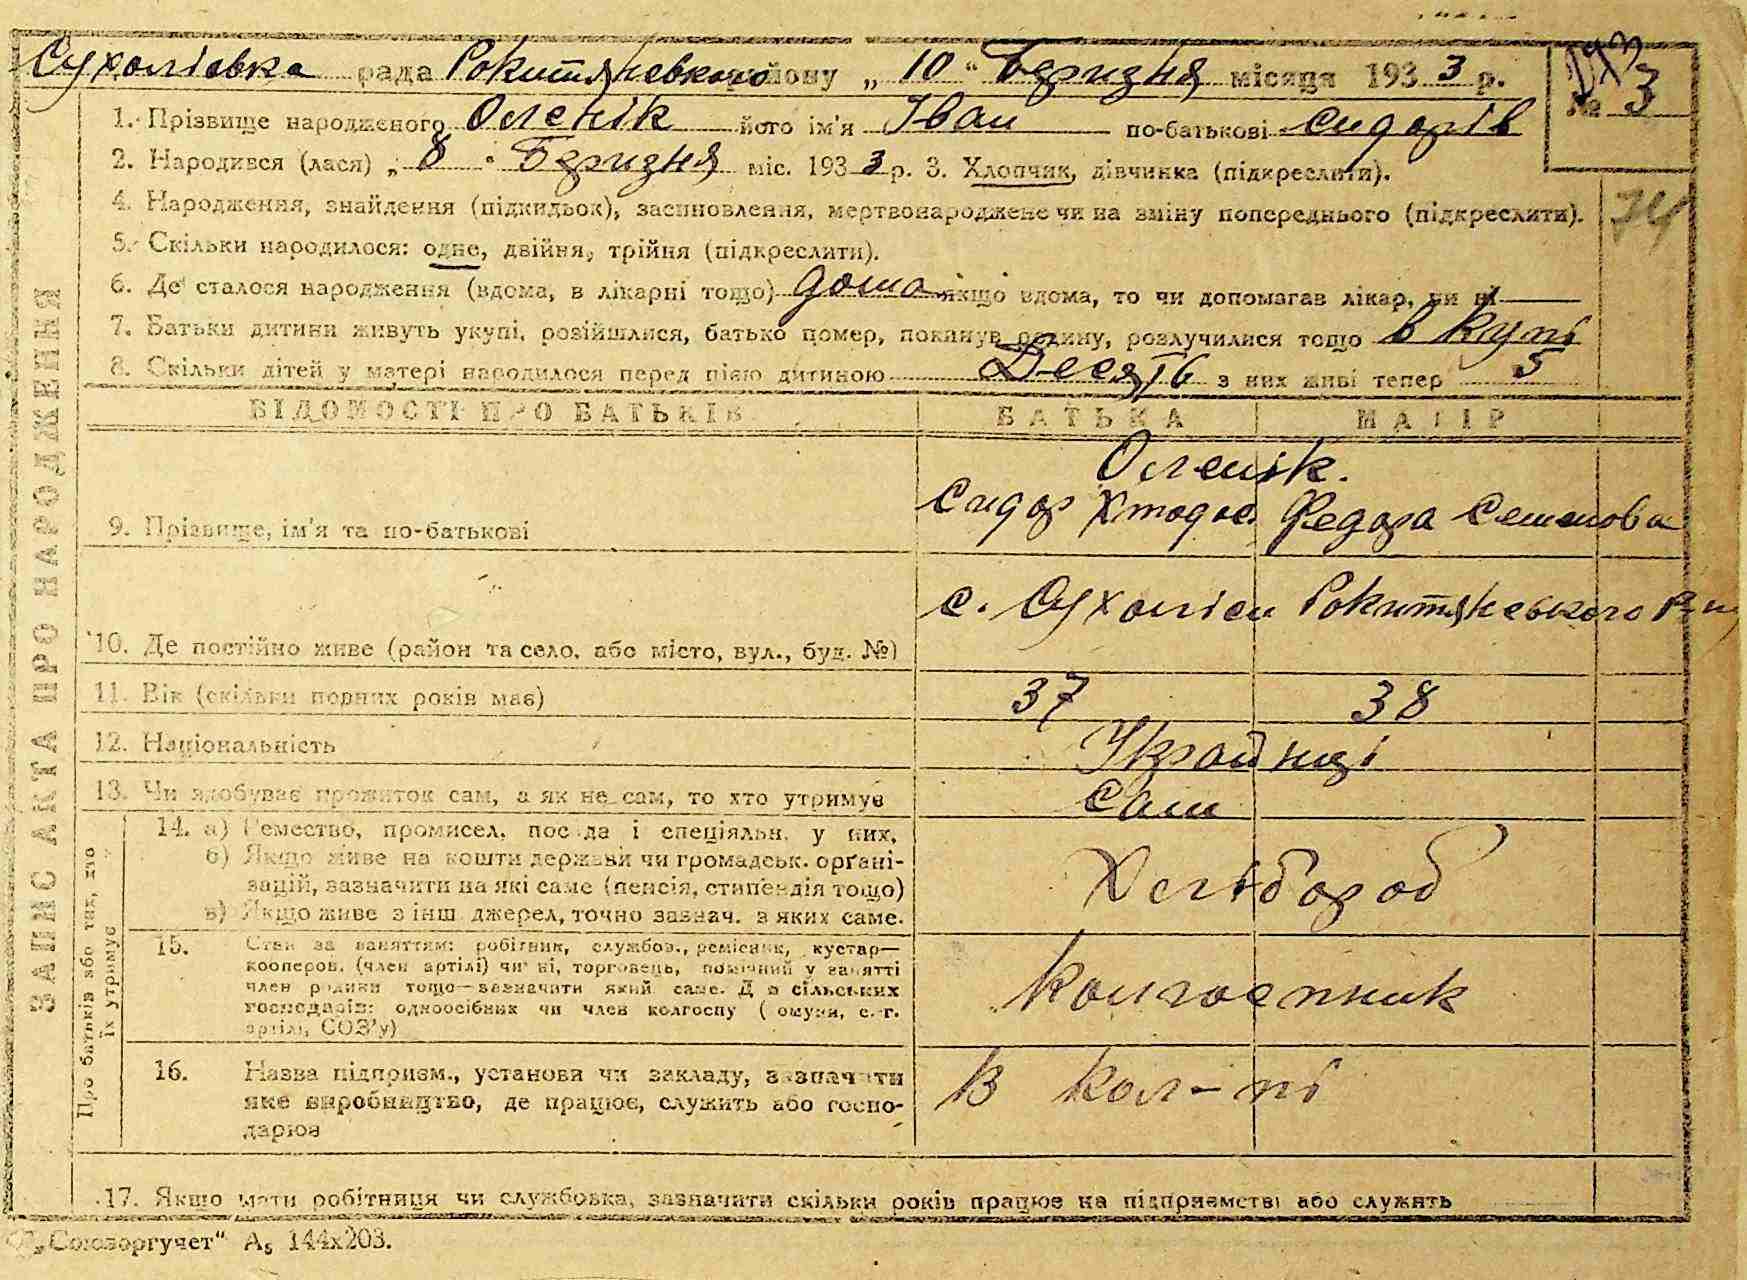 Сухоліська рада Рокитянського району „ 10 “ Беризня місяця 1933 р.
№ 3
1. Прізвище народженого Оленік його ім'я Іван по-батькові Сидорів
2. Народився (лася) „ 8 “ Беризня міс. 1933 р. 3. Хлопчик, дівчинка (підкреслити).
4. Народження, знайдення (підкидьок), засиновлення, мертвонароджене чи на зміну попереднього (підкреслити).
74
5. Скільки народилося: одне, двійня, трійня (підкреслити).
6. Де сталося народження (вдома, в лікарні тощо) дома якщо вдома, то чи допомагав лікар, чи ні
7. Батьки дитини живуть укупі, розійшлися, батько помер, покинув родину, розлучилися тощо в купі
8. Скільки дітей у матері народилося перед цією дитиною Десять з них живі тепер 5
ЗАПИС АКТА ПРО НАРОДЖЕННЯ
ВІДОМОСТІ ПРО БАТЬКІВ БАТЬКА МАТІР
Оленік.
9. Прізвище, ім'я та по-батькові Сидор Федора Семенова
10. Де постійно живе (район та село, або місто, вул., буд. №) с. Сухоліси Рокитянського
11. Вік (скільки повних років має) 37 38
12. Національність Україйнці
13. Чи здобуває прожиток сам, а як не сам, то хто утримує Сам
Про батьків або тих, хто їх утримує
14. а) Ремество, промисел, посада і спеціяльн. у них.
б) Якщо живе на кошти держави чи громадськ. орґані-
зацій, зазначити на які саме (пенсія, стипендія тощо)
в) Якщо живе з інш джерел, точно зазнач. з яких саме.
Хлібороб
15. Стан за заняттям: робітник, службов., ремісник, кустар—
кооперов. (член артілі) чи ні, торговець, помічний у занятті
член родини тощо—зазначити який саме. Для сільських
господарів: одноосібник чи член колгоспу (комуни, с.-г.
артілі, СОЗ'у)
Колгоспник
16. Назва підприєм., установи чи закладу, зазначити
яке виробництво, де працює, служить або госпо-
дарює
В кол-пі
17. Якщо мати робітниця чи службовка, зазначити скільки років працює на підприємстві або служить
„Союзоргучет“ А₅ 144х203.